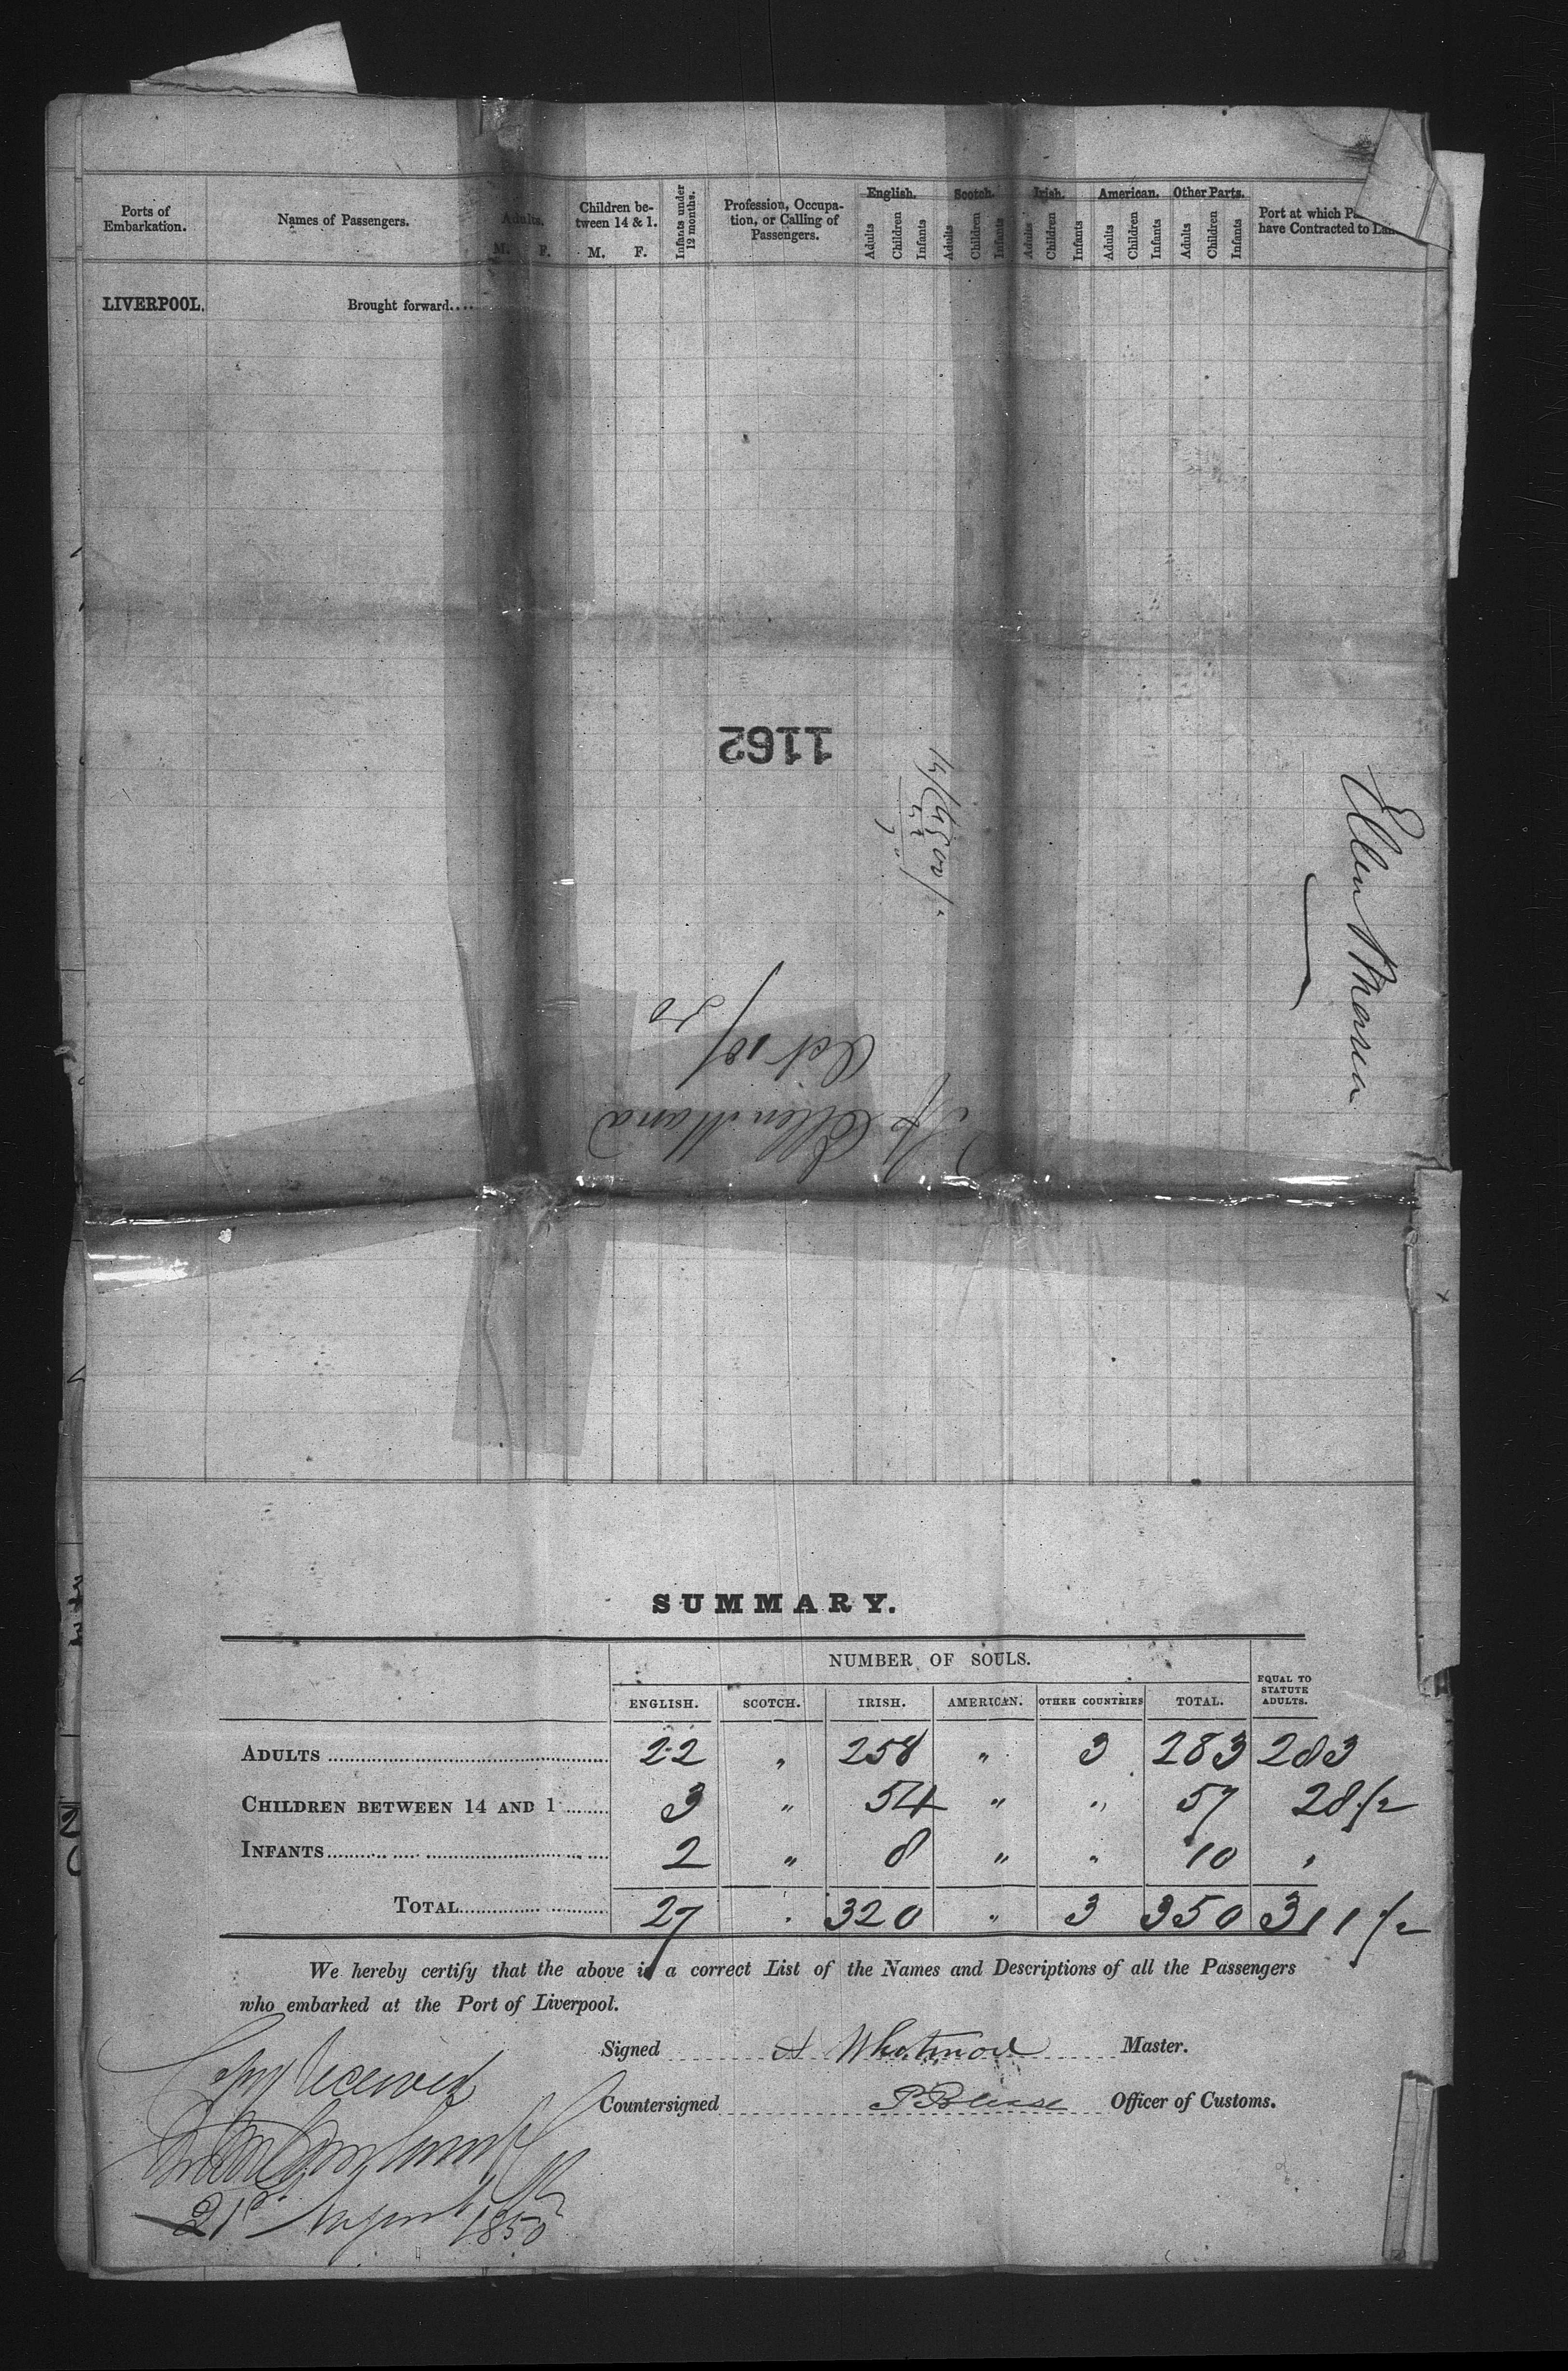 Ports of Embarkation. Names of Passengers. Adults. M. F. Children be-tween 14 & 1. M. F. Infants under 12 months. Profession, Occupa-tion, or Calling of Passengers. English. Adults Children Infants Scotch. Adults Children Infants Irish. Adults Children Infants American. Adults Children Infants Other Parts. Adults Children Infants Port at which Pa have Contracted to Lan
LIVERPOOL. Brought forward....
1162
Ellen Maria
Oct 18/50
Ellen Maria
SUMMARY.
NUMBER OF SOULS.
ENGLISH. SCOTCH. IRISH. AMERICAN. OTHER COUNTRIES TOTAL. EQUAL TO STATUTE ADULTS.
ADULTS 22 " 258 " 3 283 283
CHILDREN BETWEEN 14 AND 1 3 " 54 " " 57 28 1/2
INFANTS 2 " 8 " " 10 "
TOTAL 27 " 320 " 3 350 311 1/2
We hereby certify that the above is a correct List of the Names and Descriptions of all the Passengers
who embarked at the Port of Liverpool.
Signed A Whitmore Master.
Countersigned Officer of Customs.
Copy received
21st August 1850